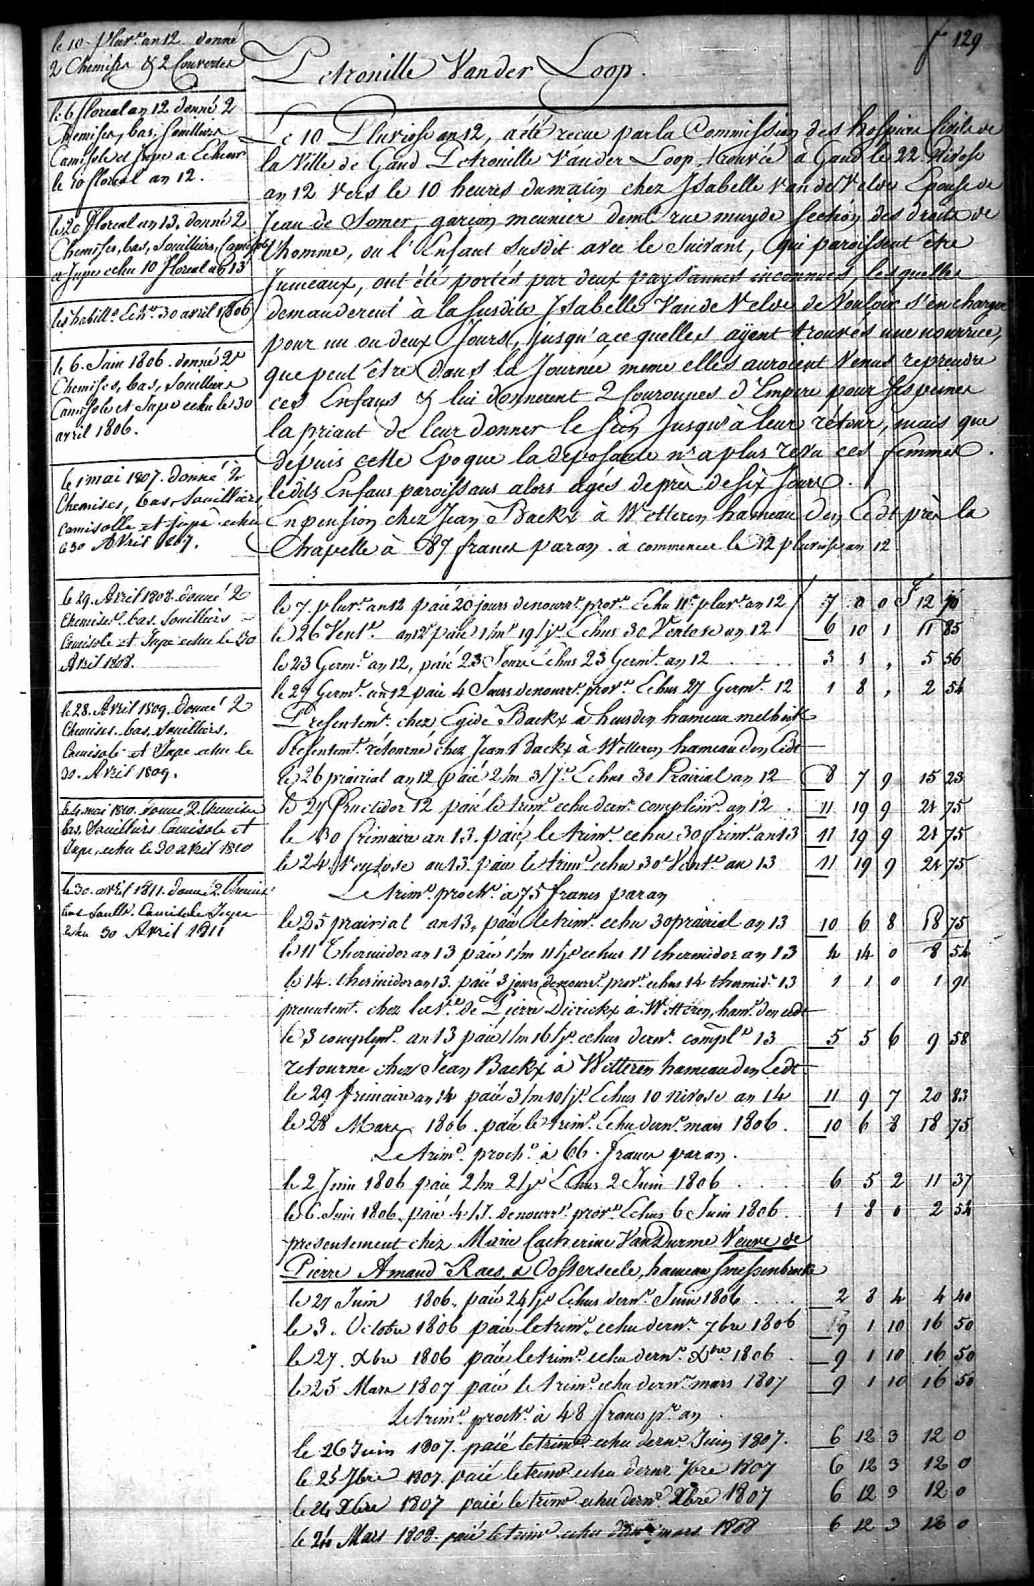 f 129
le 10 Pluvse an 12 donné
2 Chemises & 2 Couvertes
le 6 floreal an 12 donné 2
Chemises, bas, Souilliers
Camisole et Jupe a Echeoir
le 10 floreal an 12.
le 20 floreal an 13, donné 2
Chemises, bas, Souilliers, Camisole
et Jupe echu 10 floreal an 13
les habillts Echs 30 avril 1806
le 6 Juin 1806 donné 2
Chemises, bas, Souilliers
Camisole et Jupe echu le 30
avril 1806.
le 1 mai 1807. donné 2
Chemises, bas, Souilliers
Camisolle et Jupe echu
le 30 Avril 1807.
le 29. Avril 1808. donné 2
Chemises. bas. Souilliers
Camisole et Jupe echu le 30
Avril 1808.
le 28. Avril 1809. Donné 2
Chemises. bas. Souilliers.
Camisole et Jupe echu le
30. Avril 1809.
le 4 mai 1810. donné 2. Chemises
bas, Souilliers Camisole et
Jupe, echu le 30 avril 1810
le 30. avril 1811. donné 2. Chemises
bas Souills. Camisole Jupe
echu 30 Avril 1811
Petronille Van der Loop.
Le 10 Pluviose an 12, a été recue par la Commission des hospices Civils de
la Ville de Gand Petronille Van der Loop, trouvée à Gand le 22 Nivose
an 12 vers le 10 heures du matin chez Isabelle Van de Velde Epouse de
Jean de Somer, garçon meunier demt rue muyde Section des droits de
l'homme, ou l'Enfant Susdit avec le Suivant, qui paroissent être
Jumeaux, ont été portés par deux paysannes inconnues, lesquelles
demanderent à la susdite Isabelle Van de Velde de Vouloir s'en charger
pour un ou deux Jours, jusqu'a ce quelles ayent trouvés une nourrice,
que peut être dans la Journée meme elles auroient Venus reprendre
ces Enfans & lui donnerent 2 Couronnes d'Empire pour ses peines
la priant de leur donner le Sein jusqu'à leur rétour, mais que
depuis cette Epoque la deposante n'a plus revu ces femmes.
lesdits Enfans paroissans alors agés de près de Six Jours.
En pension chez Jean Backx à Wetteren hameau den Cedt près la
Chapelle à 87 francs par an. à commencer le 12 pluviose an 12
le 7 pluvs. an 12 paié 20 jours de nourrs. provs. Echu 11e pluvs. an 12 7 0 0 F 12 70
le 26 Vents. an 12 paié 1/ms 19/js Echus 30 Ventose an 12 6 10 1 11 85
le 23 Germl. an 12, paié 23 Jours échus 23 Germl. an 12 3 1 , 5 56
le 29 Germl. an 12 paié 4 Jours de nourrs. provs. Echus 27 Germl. 12 1 8 , 2 54
Presentemt. chez Egide Backx à heusden hameau
Présentemt. rétourné chez Jean Backx à Wetteren hameau den Cedt
le 26 prairial an 12 paié 2/m 3/js Echus 30 Prairial an 12 8 7 9 15 23
le 29 Fructidor 12 paié le trims. echu derns. complems. an 12 11 19 9 21 75
le 30 frimaire an 13. paié, le trims. echu 30 frims. an 13 11 19 9 21 75
le 24 Ventose an 13. paié le trims. echu 30 Vents. an 13 11 19 9 21 75
Le trims. prochs. à 75 francs par an
le 25 prairial an 13, paié le trims. echu 30 prairial an 13 10 6 8 18 75
le 11 Thermidor an 13 paié 1/m 11/js echus 11 thermidor an 13 4 14 0 8 54
le 14. thermidor an 13. paié 3 jours de nourrs. provs. echus 14 thermids. 13 1 1 0 1 91
presentemt. chez la Ve. de Pierre Dierickx à Wetteren, hams. den cedt
le 3 complems. an 13 paié 1/m 16/js echus derns. compls. 13 5 5 6 9 58
retourné chez Jean Backx à Wetteren hameau den Cedt
le 29 frimaire an 14 paié 3/m 10/js Echus 10 nivose an 14 11 9 7 20 83
le 28 Mars 1806. paié le trims. Echu derns. mars 1806. 10 6 8 18 75
Le trims. prochs. à 66. francs par an.
le 2 Juin 1806 paié 2/m 2/js Echus 2 Juin 1806 6 5 2 11 37
le 6. Juin 1806. paié 4/J. de nourrs. provs. Echus 6 Juin 1806. 1 8 0 2 54
presentement chez Marie Catherine Van Durme Veuve de
Pierre Amand Raes, à Oosterseele, hameau
le 27 Juin 1806. paié 24/js Echus derns. Juin 1806 2 8 4 4 40
le 3. Octobre 1806 paié le trims. echu derns. 7bre 1806 9 1 10 16 50
le 27. Xbre 1806 paié le trims. echu derns. Xbre. 1806 9 1 10 16 50
le 25 Mars 1807 paié le trims. echu derns. mars 1807 9 1 10 16 50
Le trims. prochs. à 48 francs pr. an
le 26 Juin 1807. paié le trims. echu derns. Juin 1807. 6 12 3 12 0
le 25 7bre 1807. paié le trims. echu dernr 7bre 1807 6 12 3 12 0
le 24 Xbre 1807 paié le trims. echu derns. Xbre 1807 6 12 3 12 0
le 24 Mars 1808. paié le trims. echu derns. mars 1808 6 12 3 12 0